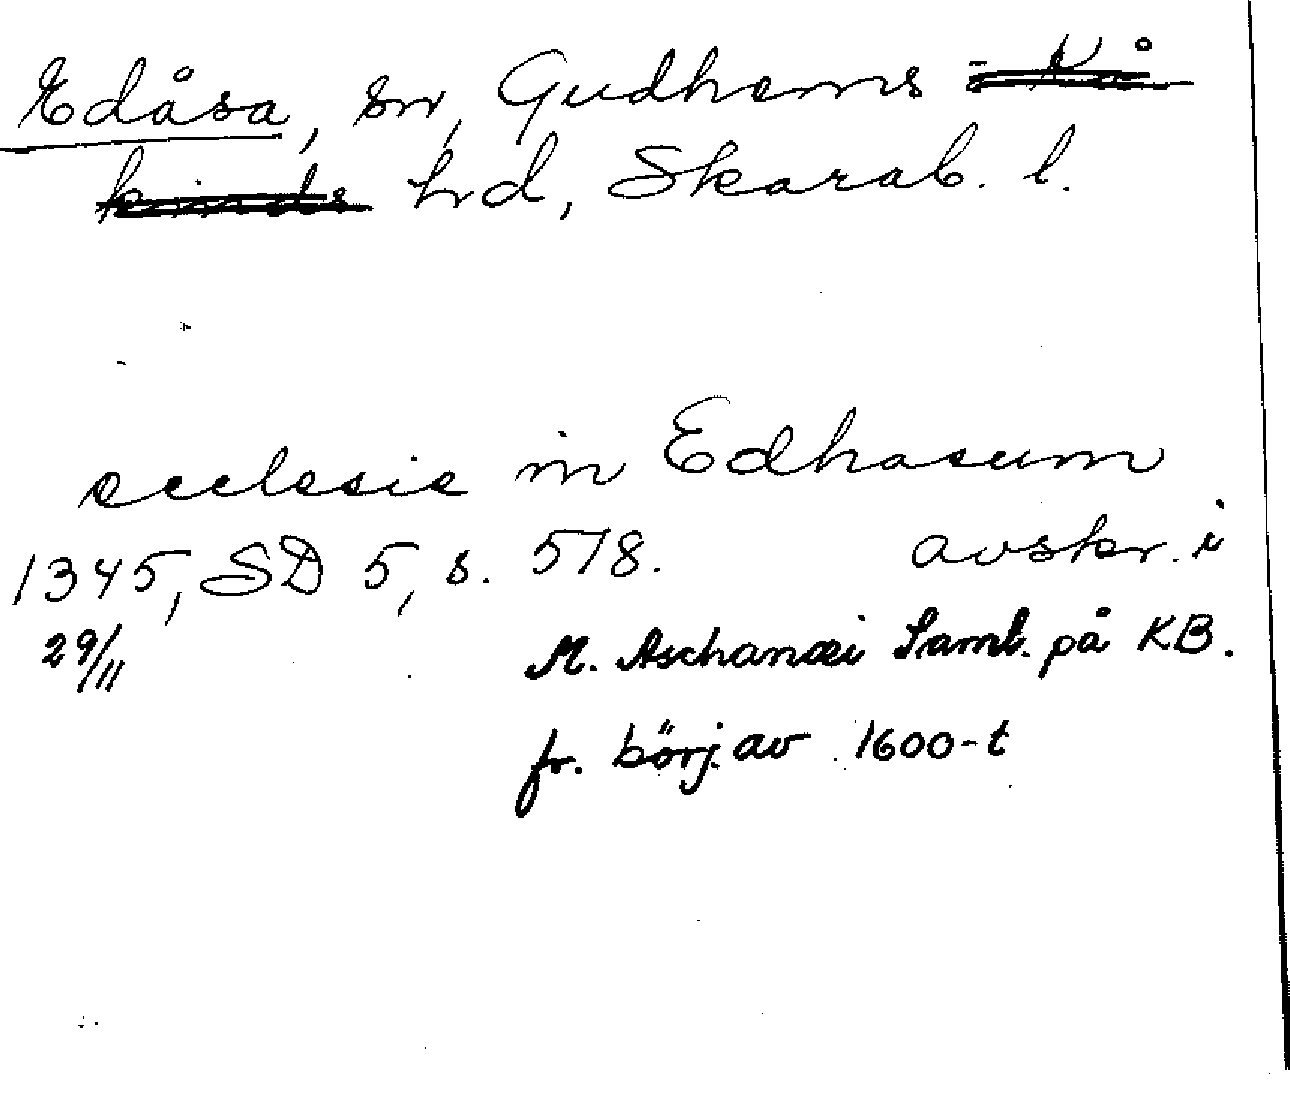 Edåsa, sn, Gudhems - Kå
kinds hrd, Skarab. l.
ecclesie in Edhasum
1345, SD 5, s. 518. avskr. i
29/11 M. Aschanæi Saml. på KB.
fr. börj. av 1600-t